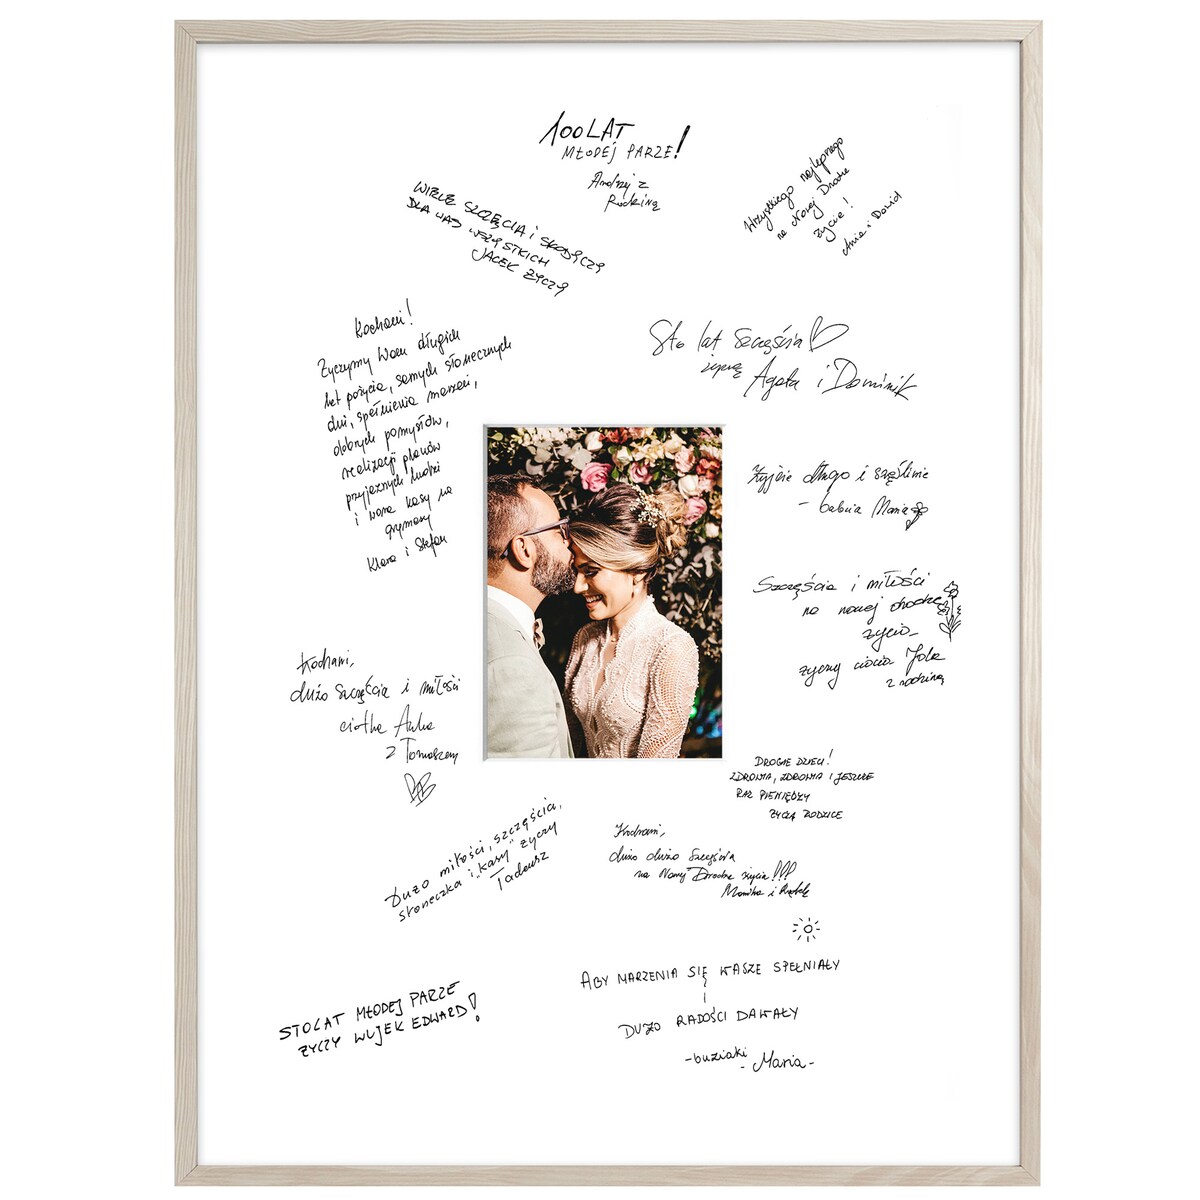 100 LAT
MŁODEJ PARZE!
Andrzej z
Rodziną
WIELE SZCZĘŚCIA i SŁODYCZY
DLA WAS WSZYSTKICH
JACEK ŻYCZY
Wszystkiego najlepszego
na Nowej Drodze
życia!
Ania i Dawid
Kochani!
Życzymy Wam długich
lat pożycia, samych słonecznych
dni, spełnienia marzeń,
dobrych pomysłów,
realizacji planów
przyjaznych ludzi
i wora kasy na
grymasy
Klara i Stefan
Sto lat szczęścia
życzą Agata i Dominik
Żyjcie długo i szęśliwie
- babcia Maria
Szczęścia i miłości
na nowej drodze
życia
życzy ciocia Jola
z rodziną
Kochani,
dużo szczęścia i miłości
ciotka Anka
z Tomaszem
DROGIE DZIECI!
ZDROWIA, ZDROWIA I JESZCZE
RAZ PIENIĘDZY
ŻYCZĄ RODZICE
Dużo miłości, szczęścia,
słoneczka i „kasy" życzy
Tadeusz
Kochani,
dużo dużo Szczęścia
na Nowej Drodze życia!!!
Monika i
ABY MARZENIA SIĘ WASZE SPEŁNIAŁY
I
DUŻO RADOŚCI DAWAŁY
-buziaki
- Maria-
STO LAT MŁODEJ PARZE
ŻYCZY WUJEK EDWARD!